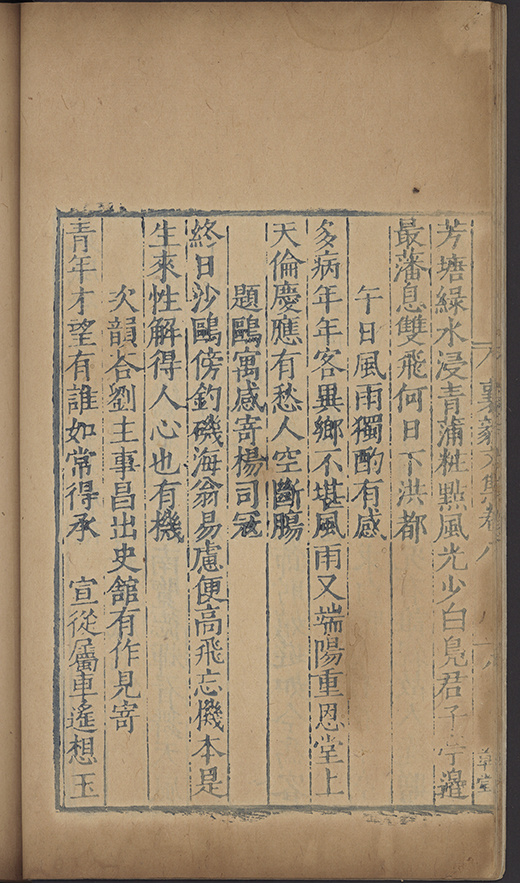 芳塘綠水浸青蒲粧點風光少白鳬君子亭邊
最蕃息雙飛何日下洪都
午日風雨獨酌有感
多病年年客異鄉不堪風雨又端陽重恩堂上
天倫慶應有愁人空斷腸
題鷗寓感寄楊司冠
終日沙鷗傍釣磯海翁易慮便高飛忘機本是
生來性解得人心也有機
次韻答劉主事昌出史館有作見寄
青年才望有誰如常得承 宣從屬車遙想玉